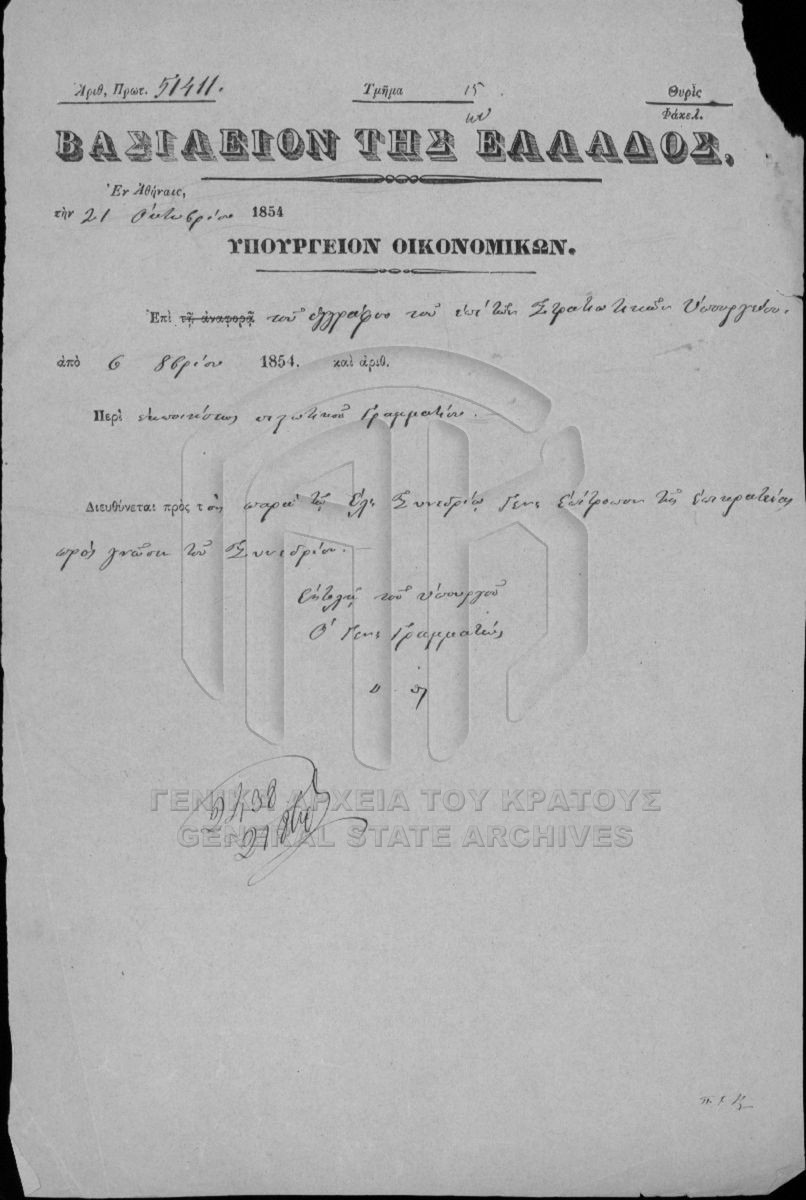 Ἀριθ, Πρωτ. 51411. Τμῆμα 15 Θυρὶς
Φάκελ.
ΒΑΣΙΛΕΙΟΝ ΤΗΣ ΕΛΛΑΔΟΣ,
Ἐν Ἀθήναις,
τὴν 21 Ὀκτωβρίου 1854
ΥΠΟΥΡΓΕΙΟΝ ΟΙΚΟΝΟΜΙΚΩΝ.
Ἐπὶ τῇ ἀναφορᾷ τοῦ ἐγγράφου τοῦ ἐπὶ τῶν Στρατιωτικῶν Ὑπουργείου.
ἀπὸ 6 8βρίου 1854. καὶ ἀριθ.
Περὶ ἐκποιήσεως πιστωτικοῦ Γραμματίου.
Διευθύνεται πρὸς τὸν παρὰ τῷ Ἐλε Συνεδρίῳ Γενι Ἐπίτροπον τῆς ἐπικρατείας
πρὸς γνῶσιν τοῦ Συνεδρίου.
Ἐντολῇ τοῦ ὑπουργοῦ
Ὁ Γενι Γραμματεὺς
2438
ΓΕΝΙΚΑ ΑΡΧΕΙΑ ΤΟΥ ΚΡΑΤΟΥΣ
GENERAL STATE ARCHIVES